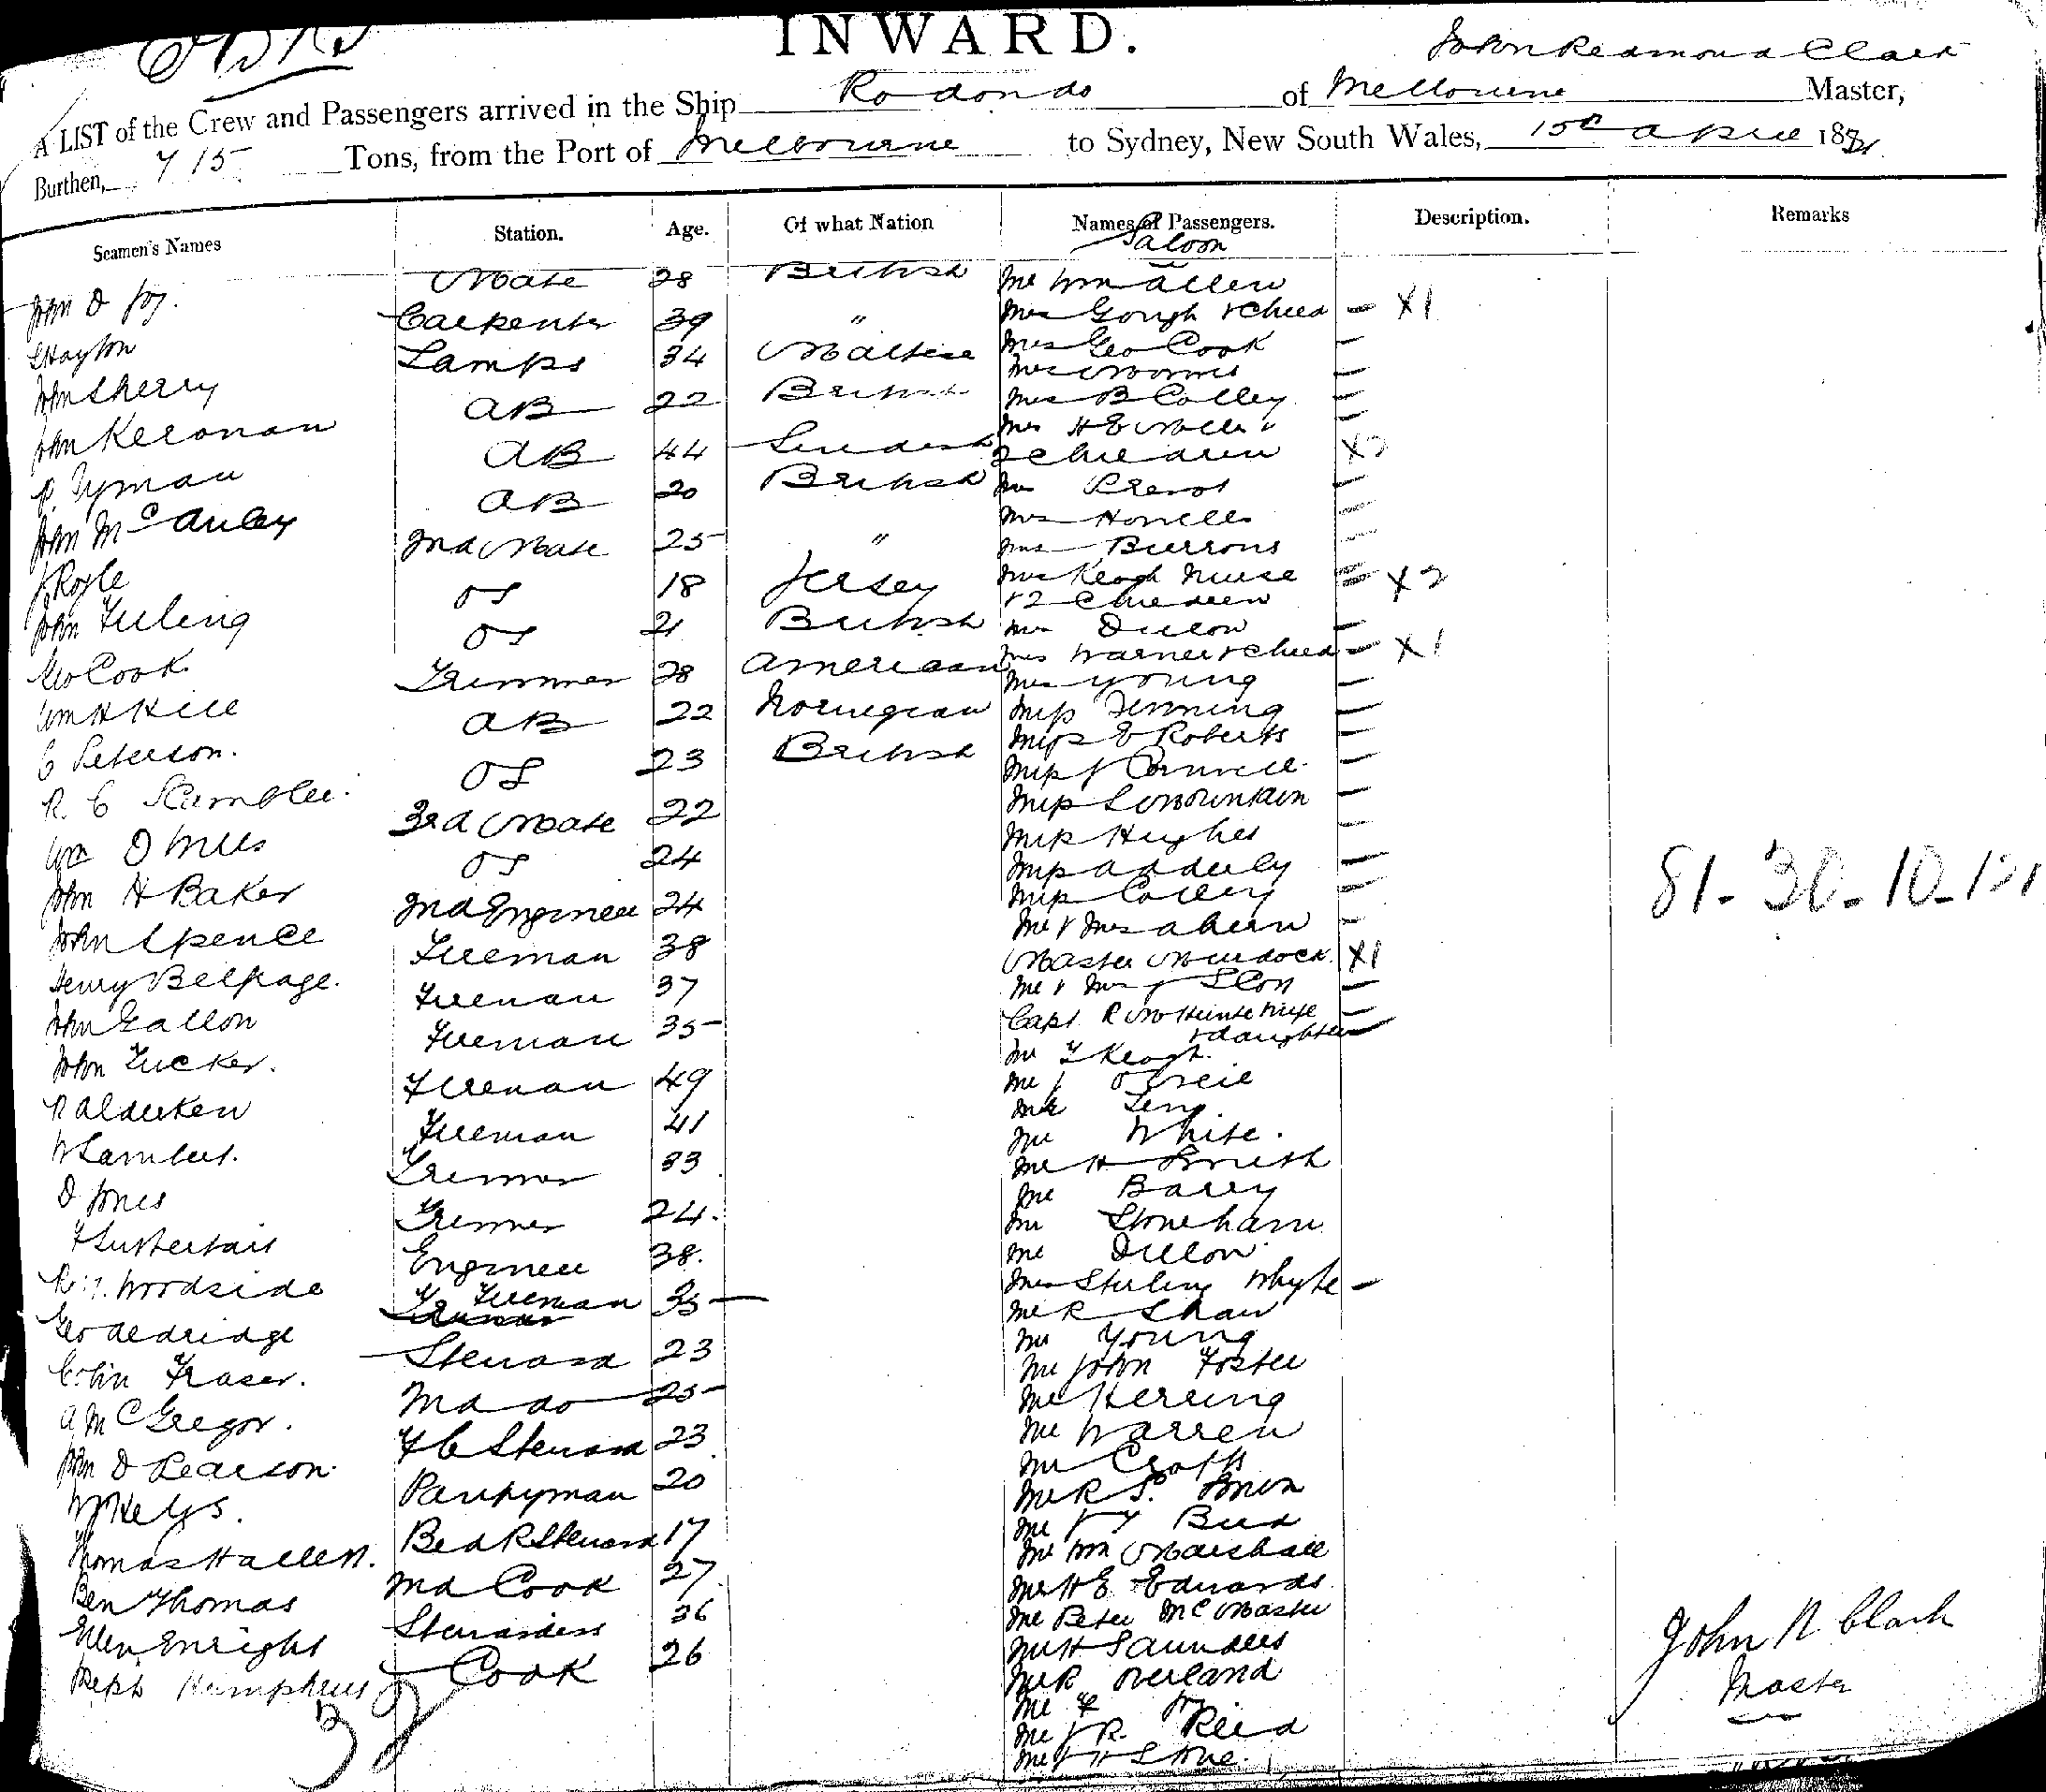 INWARD.
John Redmond Clark
A LIST of the Crew and Passengers arrived in the Ship Rodondo of Melbourne Master,
Burthen, 715 Tons, from the Port of Melbourne to Sydney, New South Wales, 15th April 18
Seamen's Names Station. Age. Of what Nation Names of Passengers. Description. Remarks
Saloon
John D Joy. Mate 28 British Mr Wm Allen
Hayton Carpenter 39 " Mrs Gough & Child - X1
John Sherry Lamps 34 Maltese Mrs Geo Cook -
Mrs Morris -
John Keronan AB 22 British Mrs B Colley -
Mrs H E
P. Tyman AB 44 Swedish 2 Children X2
John McAuley AB 20 British Mrs Prevot -
Mrs Howells -
J Royle 2nd Mate 25 " Mrs Burrows -
John OS 18 Jersey Mrs Keogh Nurse = X2
& 2 Children
Geo Cook OS 21 British Mrs Dillon -
Mrs Warner & Child - X1
Wm H Hill Trimmer 28 American Mrs Young -
C Peterson. AB 22 Norwegian Miss Fenning -
Miss E Roberts -
R. C OS 23 British Miss J Cornwell -
Wm D Mills 3rd Mate 22 Miss L -
Miss Hughes -
John H Baker OS 24 Miss Adderly -
Miss Colley -
John Spence 2nd Engineer 24 Mr & Mrs Ahern -
81-30-10-121
Henry Belpage. Fireman 38 Master Murdock. X1
John Gallon Fireman 37 Mr & Mrs J -
Capt R wife -
& daughter -
John Tucker. Fireman 35 Mr T Keogh.
R Alderken Fireman 49 Mr J O'Neil
Mr
W Lambert. Fireman 41 Mr White.
D Jones Trimmer 33 Mr H Smith
Mr Barry
Trimmer 24. Mr Stoneham
R. Woodside Engineer 38. Mr Dillon
Mrs Sterling Whyte -
Geo Aldridge Fireman 35 Mr R Shaw
Mr Young
Colin Fraser. Steward 23 Mr John Foster
A McGregor. 2nd do 25 Mr Herring
Mr Warren
John D Pearson. F C Steward 23 Mr Crofts
W Kelys. Pantryman 20 Mr R S.
Mr J F Bird
Thomas Hallett. Bed R Steward 17 Mr Wm Marshall
Ben Thomas 2nd Cook 27 Mr H E Edwards
Mr Peter McMaster
Ellen Enright Stewardess 36 Mr H Saunders
Joseph Humphries Cook 26 Mr R Overland
Mr F Joy
32
Mr J R. Reid
Mr J H Stone.
John R Clark
Master